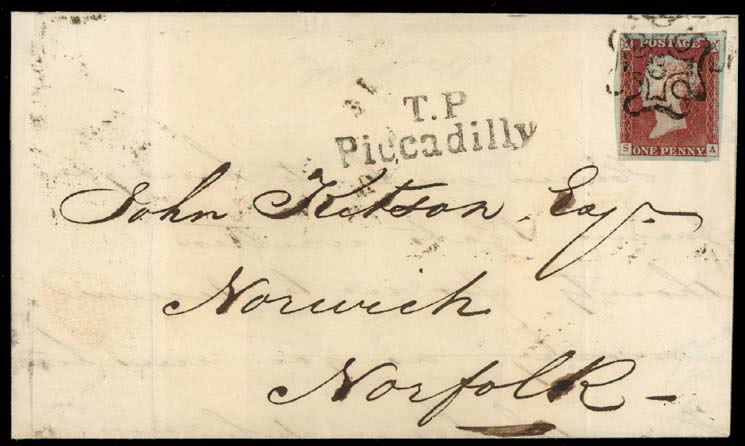 POSTAGE
T.P
Piccadilly
S ONE PENNY. A
John Kitson Esq.
Norwich
Norfolk